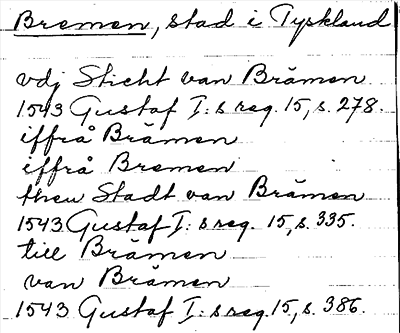 Bremen, stad i Tyskland
vdj Sticht van Brämen
1543 Gustaf I:s reg. 15, s. 278.
iffrå Brämen
iffrå Bremen
then Stadt van Brämen
1543 Gustaf I:s reg. 15, s. 335.
till Brämen
van Brämen
1543 Gustaf I:s reg. 15, s. 386.